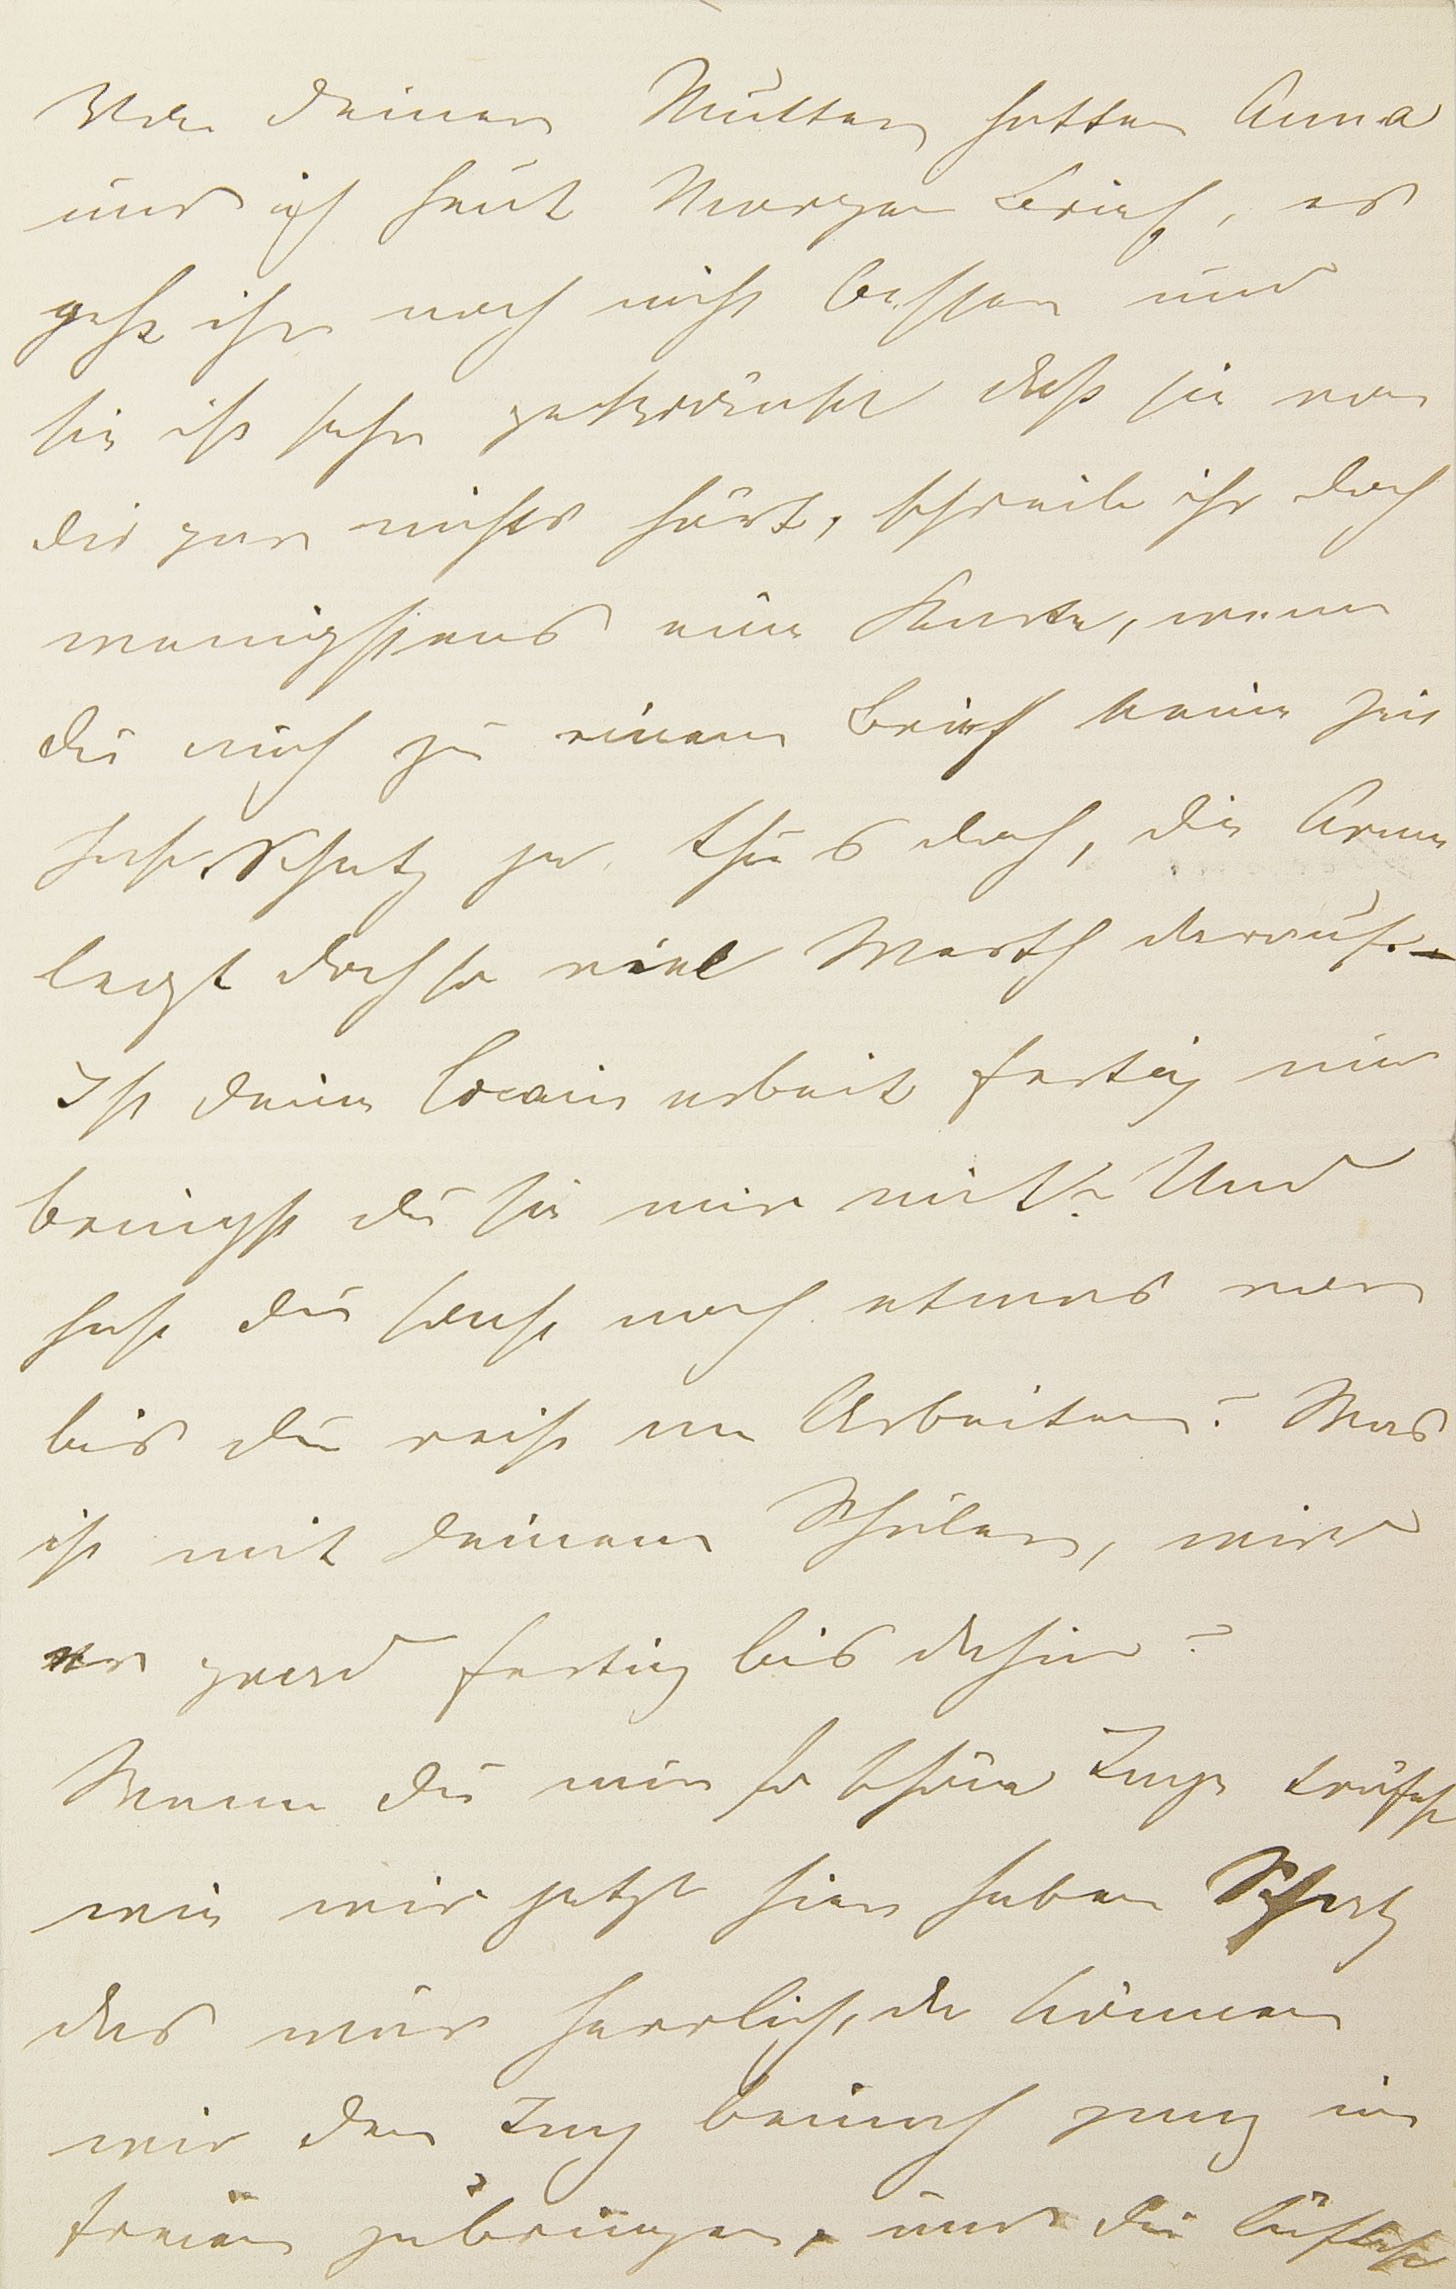 Von deiner Mutter hatten Anna
und ich heut Morgen Brief, es
geht ihr noch nicht besser und
sie ist sehr gekränkt daß sie von
dir gar nichts hört, schreib ihr doch
wenigstens eine Karte, wenn
du auch zu einem Brief keine Zeit
hast, Schatz ja, thu's doch, die Arme
legt doch so viel Werth darauf. –
Ist deine Cocainarbeit fertig und
bringst du sie mir mit? Und
hast du sonst noch etwas vor
bis du reist an Arbeiten? Was
ist mit deinem Schüler, wird
er grad fertig bis dahin?
Wenn du nur so schöne Tage träfest
wie wir jetzt hier haben Schatz
das wär herrlich, da können
wir den Tag beinah ganz im
freien zubringen, und du